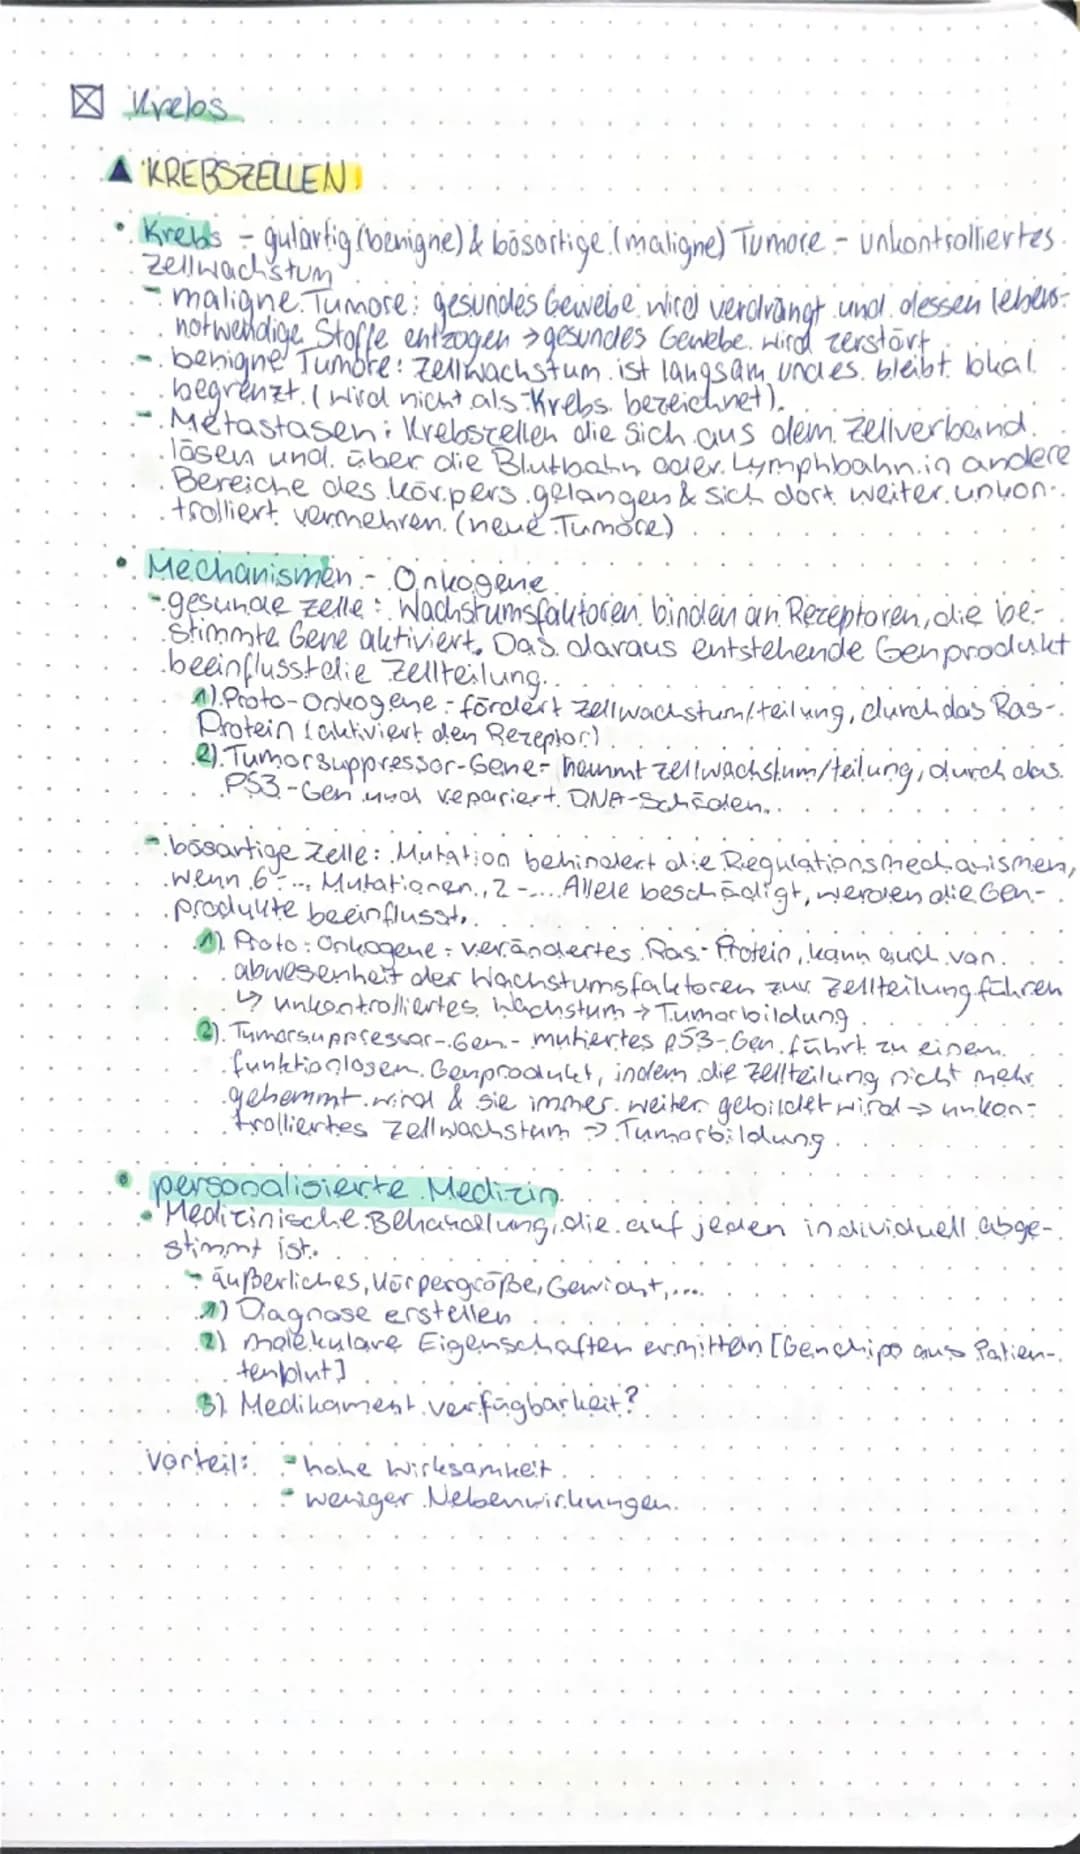 Krebs
KREBSZELLEN
Krebs - gutartig (benigne) & bösartige (maligne) Tumore - unkontrolliertes
Zellwachstum
- maligne Tumore: gesundes Gewebe wird verdrängt und dessen lebens-
notwendige Stoffe entzogen → gesundes Gewebe wird zerstört
- benigne Tumore: Zellwachstum ist langsam und es bleibt lokal
begrenzt. (wird nicht als Krebs bezeichnet)
- Metastasen: Krebszellen die sich aus dem Zellverband
lösen und über die Blutbahn oder Lymphbahn in andere
Bereiche des Körpers gelangen & sich dort weiter unkon-
trolliert vermehren. (neue Tumore)
Mechanismen - Onkogene
- gesunde Zelle: Wachstumsfaktoren binden an Rezeptoren, die be-
stimmte Gene aktiviert. Das daraus entstehende Genprodukt
beeinflusst die Zellteilung.
1) Proto-Onkogene - fördert Zellwachstum/teilung, durch das Ras-
Protein (aktiviert den Rezeptor)
2) Tumorsuppressor-Gene - hemmt Zellwachstum/teilung, durch das
P53-Gen und repariert DNA-Schäden.
- bösartige Zelle: Mutation behindert die Regulationsmechanismen,
wenn 6-... Mutationen, 2-... Allele beschädigt, werden die Gen-
produkte beeinflusst.
1) Proto-Onkogene - verändertes Ras-Protein, kann auch von
abwesenheit der Wachstumsfaktoren zur Zellteilung führen
↳ unkontrolliertes Wachstum → Tumorbildung
2) Tumorsuppressor-Gen - mutiertes p53-Gen führt zu einem
funktionlosen Genprodukt, indem die Zellteilung nicht mehr
gehemmt wird & sie immer weiter gebildet wird → unkon-
trolliertes Zellwachstum → Tumorbildung
personalisierte Medizin
Medizinische Behandlung, die auf jeden individuell abge-
stimmt ist.
→ äußerliches, Körpergröße, Gewicht,...
1) Diagnose erstellen
2) molekulare Eigenschaften ermitteln [Genchips aus Patien-
tenblut]
3) Medikament verfügbarkeit?
Vorteil: - hohe Wirksamkeit
- weniger Nebenwirkungen.